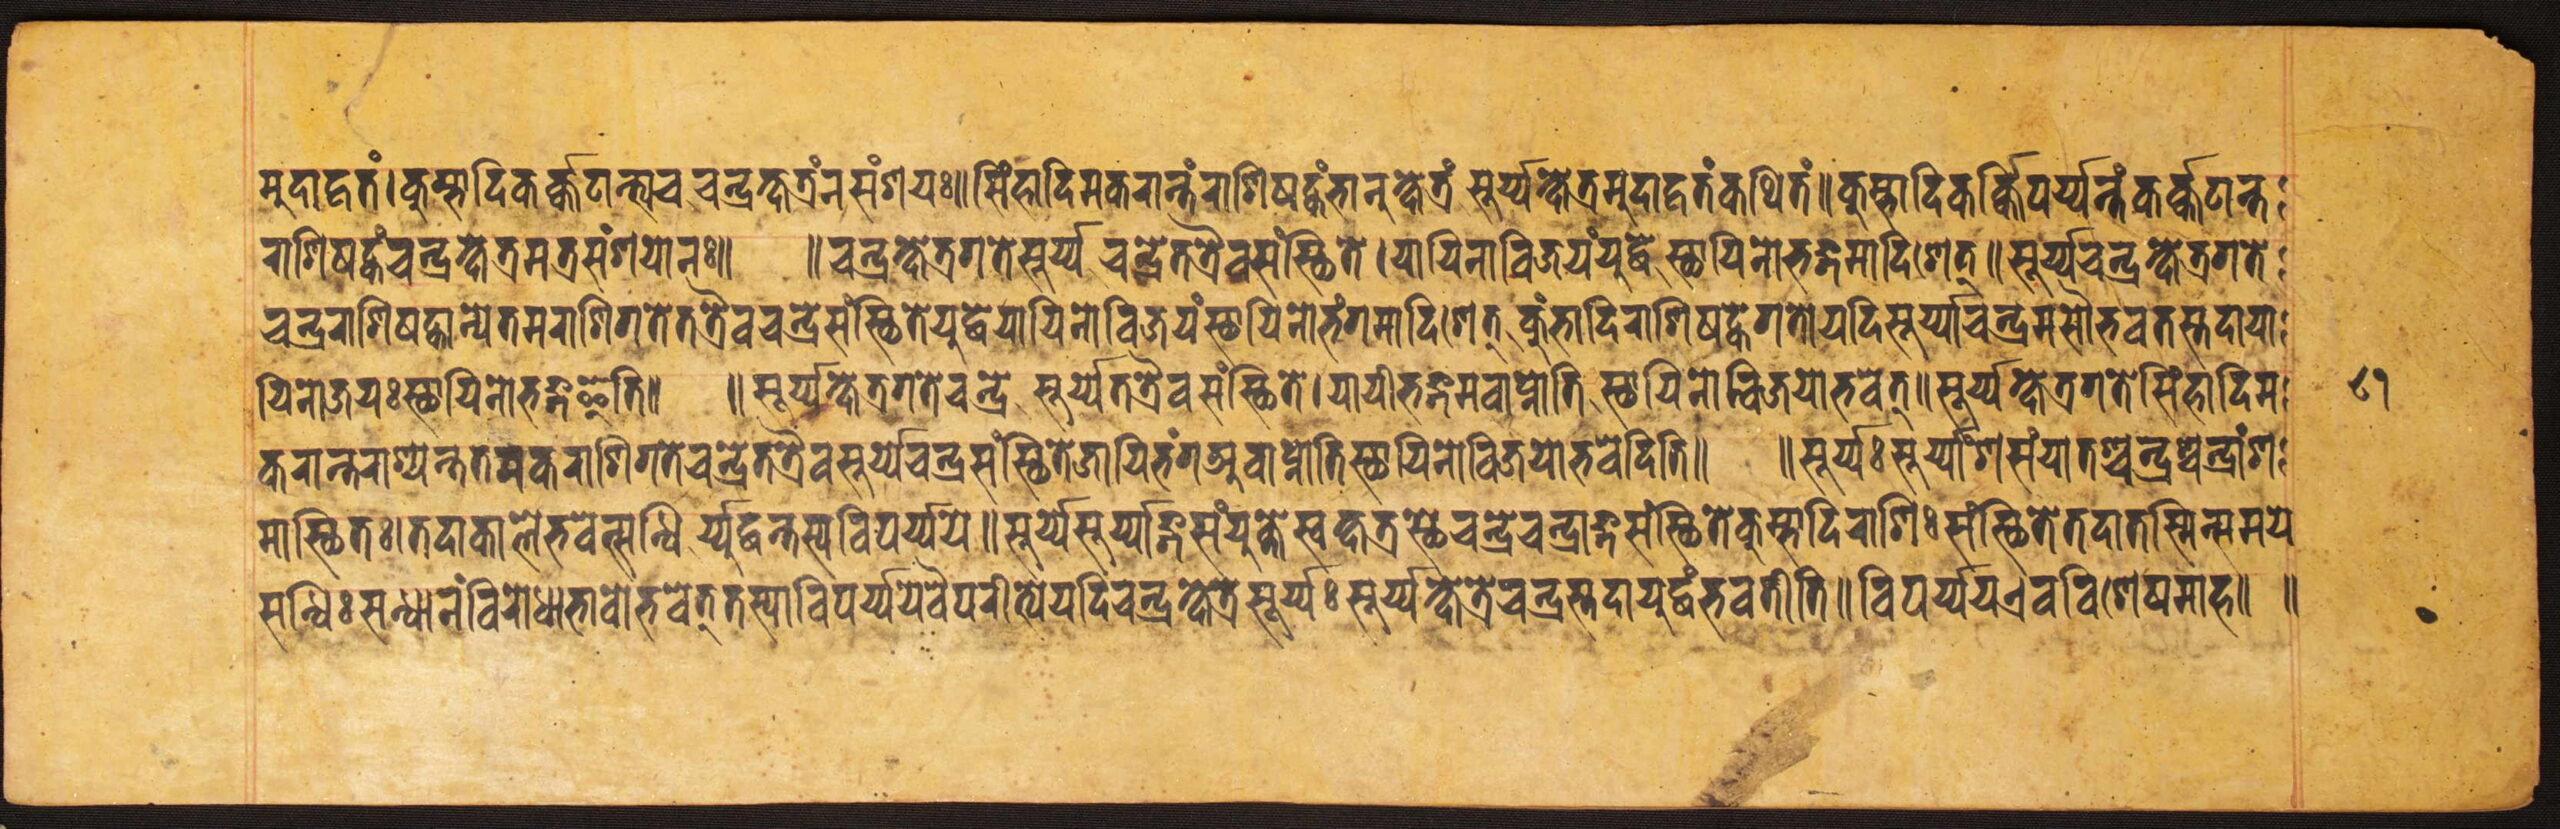 मुदाहृतं। कुम्भादिकर्क्कटान्त्यच चन्द्रक्षत्रंनसंशयः॥ सिंहादिमकरान्तंराशिषट्कंभानुक्षेत्रं सूर्य्यक्षेत्रमुदाहृतंकथितं॥ कुम्भादिकर्क्किपर्य्यन्तंकर्क्कटान्त
राशिषट्कंचन्द्रक्षेत्रमत्रसंशयोनः॥ ॥ चन्द्रक्षेत्रगतेसूर्य्य चन्द्रेतत्रैवसंस्थिते। यायिनाविजयंयुद्धे स्थायिनोभङ्गमादिशेत्॥ सूर्य्यचन्द्रक्षेत्रगते
चन्द्रराशिषट्कान्येतमराशिगतेतत्रैवचन्द्रेसंस्थितेयुद्धेयायिनोविजयंस्थायिनोभंगमादिशेत् कुंभादिराशिषट्केगतोयदिसूर्य्याचन्द्रमसौभवतस्तदाया
यिनोजयःस्थायिनोभङ्गइति॥ ॥ सूर्य्यक्षेत्रगतेचन्द्रे सूर्य्येतत्रैवसंस्थिते। यायीभङ्गमवाप्नोति स्थायिनोविजयोभवेत्॥ सूर्य्यक्षेत्रगतेसिंहादिम
करान्तराश्यन्ततमकराशिगतेचन्द्रेतत्रैवसूर्य्येचन्द्रसंस्थितेजायिभंगअवाप्नोतिस्थायिनोविजयोभवेदिति॥ ॥ सूर्य्यःसूर्य्यांशसंयातश्चन्द्रश्चन्द्रांश
मास्थितः। तदाकालेभवेत्सन्धि र्य्युद्धन्तस्यविपर्य्यये॥ सूर्य्येसूर्य्याङ्गसंयुक्तेस्वक्षत्रस्थेचन्द्रेचन्द्राङ्गसंस्थितेकुम्भादिराशिःसंस्थितेतदातस्मिन्समये
सन्धिःसन्धानंविरोधाभावोभवेत् तस्याविपर्य्ययेवैपरीत्येयदिचन्द्रक्षेत्रेसूर्य्यःसूर्य्यक्षेत्रेचन्द्रस्तदायुद्धंभवतीति॥ विपर्य्ययएवविशेषमाह॥ ॥
८१